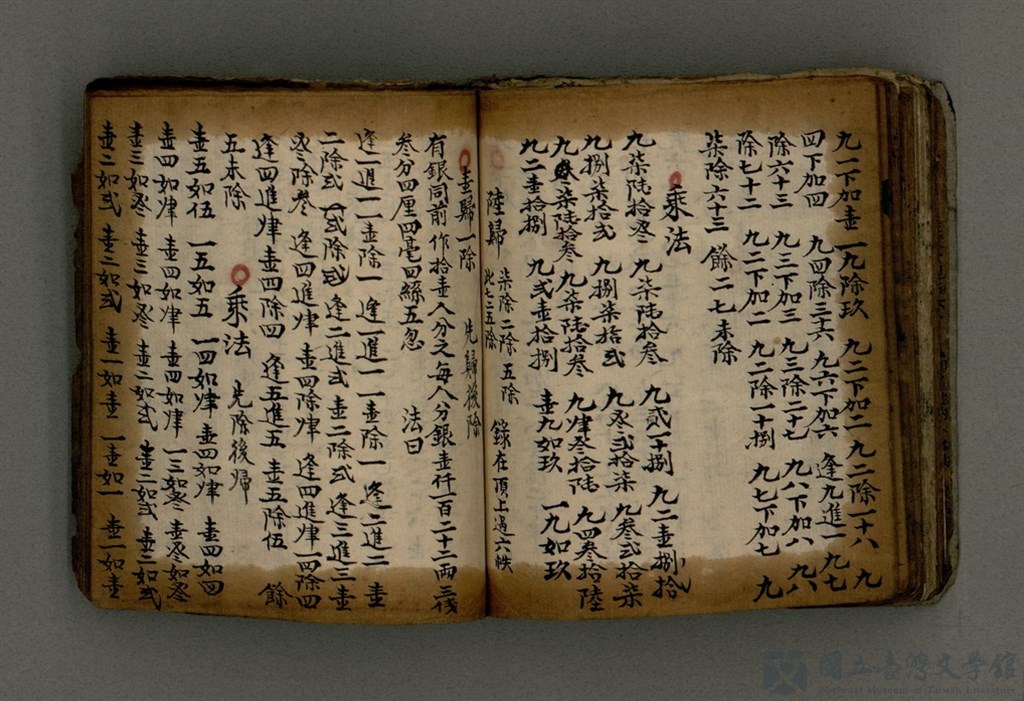 九一下加壹 一九除玖 九二下加二 九二除一十八 九
四下加四 九四除三十六 九六下加六 逢九進一 九七
除六十三 九三下加三 九三除二十七 九八下加八 九八
除七十二 九二下加二 九二除一十捌 九七下加七 九
柒除六十三 餘二七未除
乘法
九柒陸拾叁 九柒陸拾叁 九貳一十捌 九二壹捌拾
九捌柒拾弍 九捌柒拾弍 九叁弍拾柒 九叁弍拾柒
九柒陸拾叁 九柒陸拾叁 九肆叁拾陸 九四叁拾陸
九二壹拾捌 九弍壹拾捌 壹九如玖 一九如玖
陸歸 柒除二除 五除 錄在頂上過六帙
此七二五除
壹歸一除 先歸後除
有銀同前作拾壹人分之每人分銀壹仟一百二十二両三伐
叁分四厘四毫四絲五忽 法曰
逢一進一 一壹除一 逢一進一 一壹除一 逢二進二 壹
二除弍 一弍除弍 逢二進弍 壹二除弍 逢三進三 壹
叁除叁 逢四進肆 壹四除肆 逢四進肆 一四除四
逢四進肆 壹四除四 逢五進五 壹五除伍 餘
五未除
乘法 先除後歸
壹五如伍 一五如五 一四如肆 壹四如肆 壹四如四
壹四如肆 壹四如肆 壹四如肆 一三如叁 壹叁如叁
壹三如叁 壹三如叁 壹二如弍 壹二如弍 壹二如弍
壹二如弍 壹二如弍 壹一如壹 一壹如一 壹一如壹
國立臺灣文學館
National Museum of Taiwan Literature